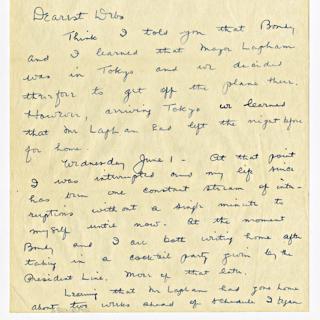 Dearest Debs
Think I told you that Boney
and I learned that Major Lapham
was in Tokyo and we decided
therefore to get off the plane there.
However, arriving Tokyo we learned
that Mr Lapham had left the night before
for home.
Wednesday June 1 - At that point
I was interrupted and my life since
has been one constant stream of inter-
ruptions without a single minute to
myself until now. At the moment
Boney and I are both writing home after
taking in a cocktail party given by the
President Line. More of that later.
Learning that Mr Lapham had gone home
about two weeks ahead of schedule I began